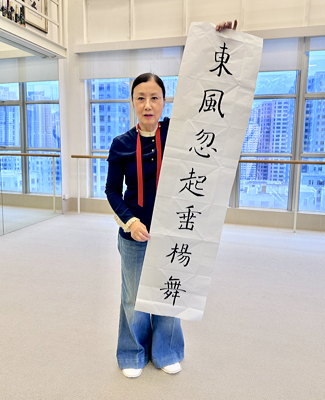 東風忽起垂楊舞